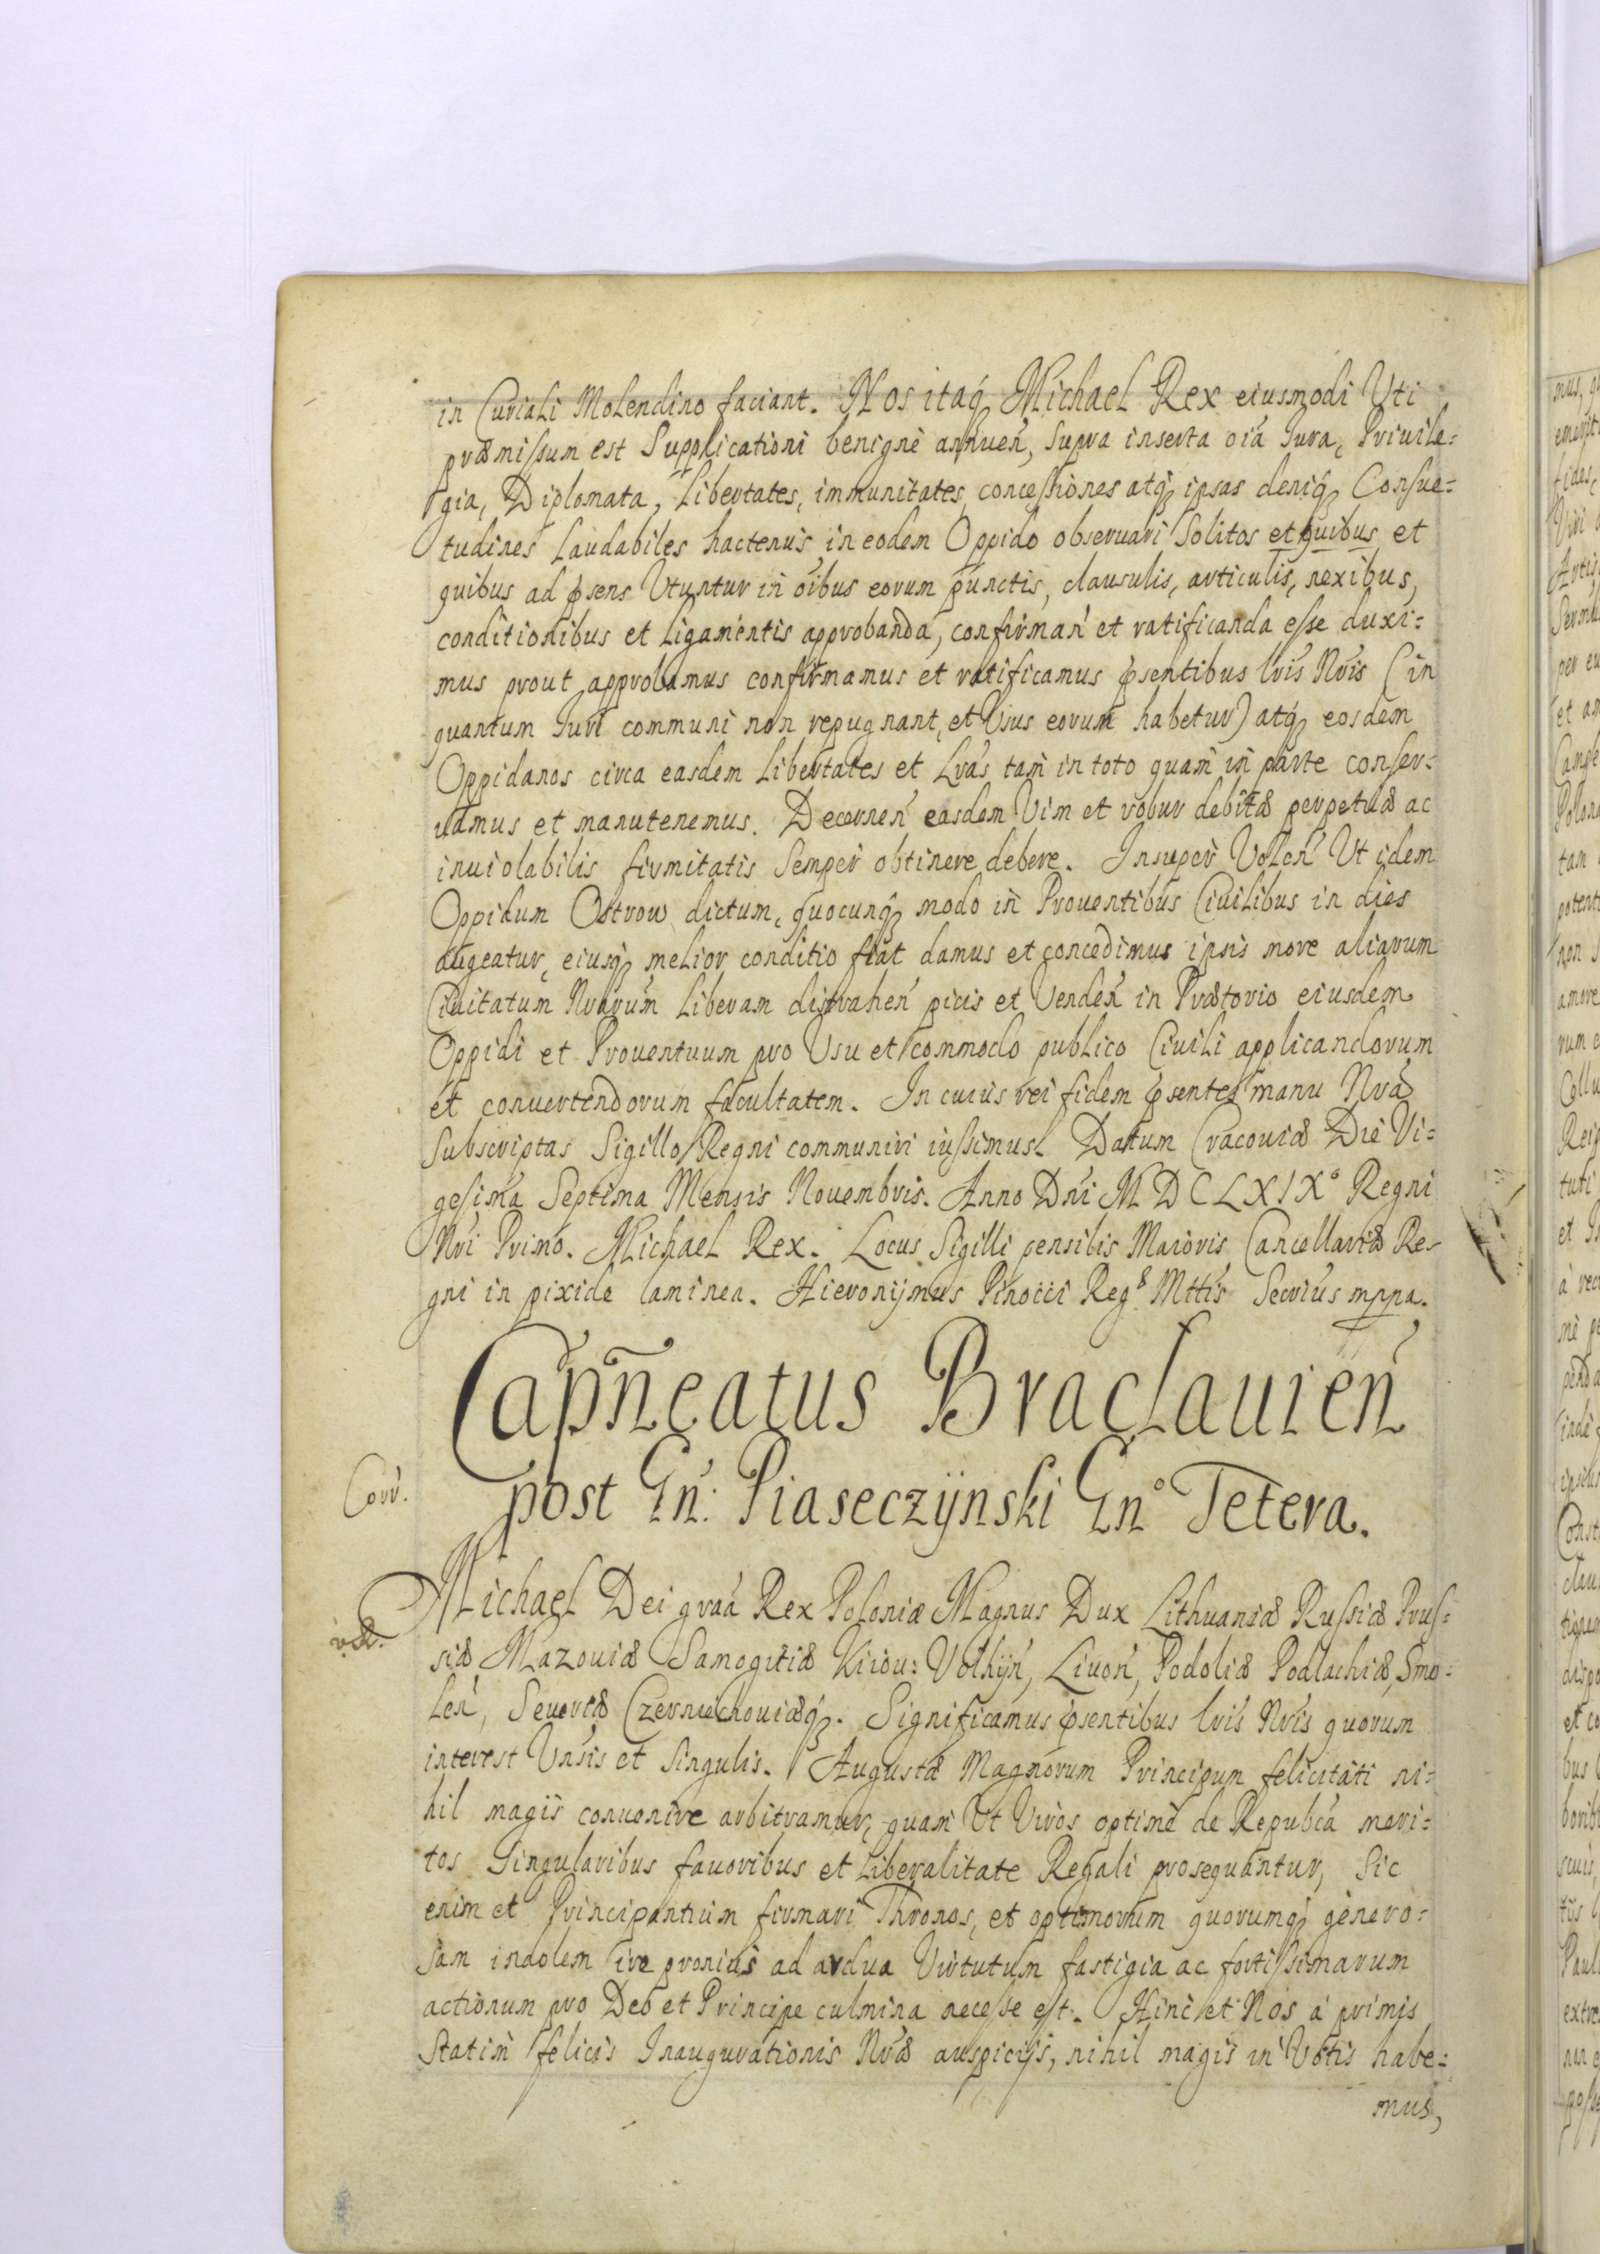 in Curiali Molendino faciant. Nos itaq₃ Michael Rex eiusmodi Uti
præmissum est Supplicationi benignè annuen̄, supra inserta oīa Jura, Privile=
gia, Diplomata, libertates, immunitates, concessiones atq₃ ipsas deniq₃ Consue=
tudines laudabiles hactenus in eodem Oppido observari solitos et quibus et
quibus ad p̄sens Utuntur in oībus eorum punctis, clausulis, articulis, nexibus,
conditionibus et ligamentis approbanda, confirman̄ et ratificanda esse duxi=
mus prout approbamus confirmamus et ratificamus p̄sentibus lrīs Nrīs (in
quantum Juri communi non repugnant, et Usus eorum habetur) atq₃ eosdem
Oppidanos circa easdem libertates et Lrās tam in toto quam in parte conser=
uamus et manutenemus. Decernen̄ easdem Vim et robur debitæ perpetuæ ac
inuiolabilis firmitatis semper obtinere debere. Insuper Volen̄ Ut idem
Oppidum Ostrow dictum, quocunq₃ modo in Prouentibus Ciuilibus in dies
augeatur, eiusq₃ melior conditio fiat damus et concedimus ipsis more aliarum
Ciuitatum Nrārum liberam distrahen̄ picis et Venden̄ in Prætorio eiusdem
Oppidi et Prouentuum pro Usu et commodo publico Ciuili applicandorum
et conuertendorum facultatem. In cuius rei fidem p̄sentes manu Nrā
subscriptas Sigillo Regni communiri iussimus. Datum Cracouiæ Die Vi=
gesima Septima Mensis Nouembris. Anno Dn̄i MDCLXIX° Regni
Nrī Primo. Michael Rex. Locus Sigilli pensilis Maioris Cancellariæ Re-
gni in pixide laminea. Hieronijmus Pinocci Reg. Mttīs Secrīus mppa.
Capn̄eatus Braclauien̄
post Gn̄: Piaseczijnski Gn° Tetera.
Corr.
Michael Dei grāā Rex Poloniæ Magnus Dux Lithuaniæ Russiæ Prus=
siæ Mazouiæ Samogitiæ Kiiou: Volhijn̄, Liuon̄, Podoliæ Podlachiæ, Smo=
len̄, Seueriæ Czerniechouiæq₃. Significamus p̄sentibus lrīs Nrīs quorum
interest Unīsis et singulis. Augustæ Magnorum Principum felicitati ni=
hil magis conuenire arbitramur, quam Ut Viros optimè de Republīca meri=
tos singularibus fauoribus et liberalitate Regali prosequantur, sic
enim et Principantium firmari Thronos, et optimorum quorumq₃ genero=
sam indolem ire pronius ad ardua Virtutum fastigia ac fortissimarum
actionum pro Deo et Principe culmina necesse est. Hinc et Nos à primis
statim felicis Inaugurationis Nrǣ auspicijs, nihil magis in Votis habe=
mus,